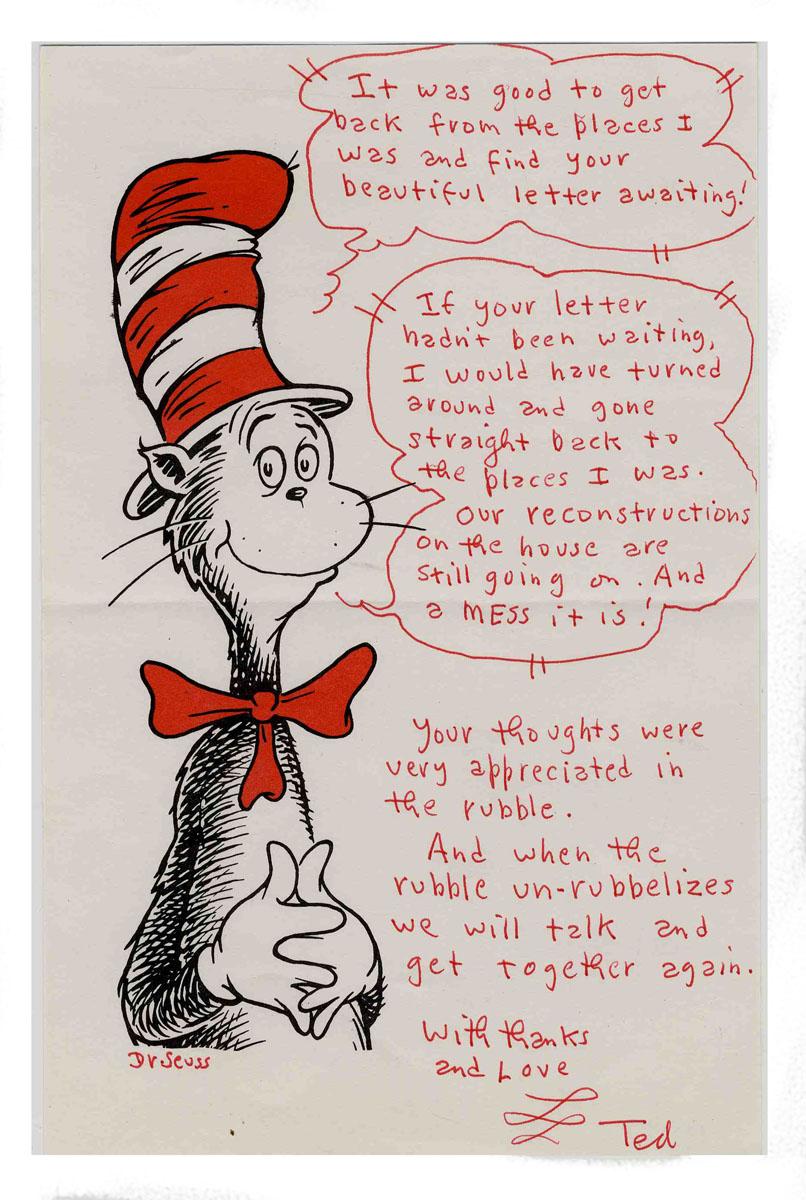 It was good to get
back from the places I
was and find your
beautiful letter awaiting!
If your letter
hadn't been waiting,
I would have turned
around and gone
straight back to
the places I was.
Our reconstructions
on the house are
still going on. And
a MESS it is!
Your thoughts were
very appreciated in
the rubble.
And when the
rubble un-rubbelizes
we will talk and
get together again.
With thanks
and Love
Ted
Dr Seuss